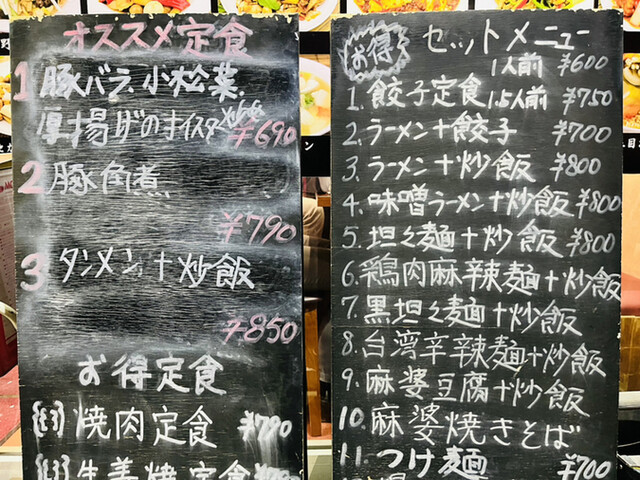 オススメ定食
1 豚バラ、小松菜、
厚揚げのオイスター
¥690
2 豚角煮
¥790
3 タンメン十炒飯
¥850
お得定食
焼肉定食 ¥790
生姜焼定食
お得 セットメニュー
1人前 ¥600
1. 餃子定食 1.5人前 ¥750
2. ラーメン十餃子 ¥700
3. ラーメン十炒飯 ¥800
4. 味噌ラーメン十炒飯 ¥800
5. 坦々麺十炒飯 ¥800
6. 鶏肉麻辣麺十炒飯
7. 黒坦々麺十炒飯
8. 台湾辛辣麺十炒飯
9. 麻婆豆腐十炒飯
10. 麻婆焼きそば
11. つけ麺 ¥700